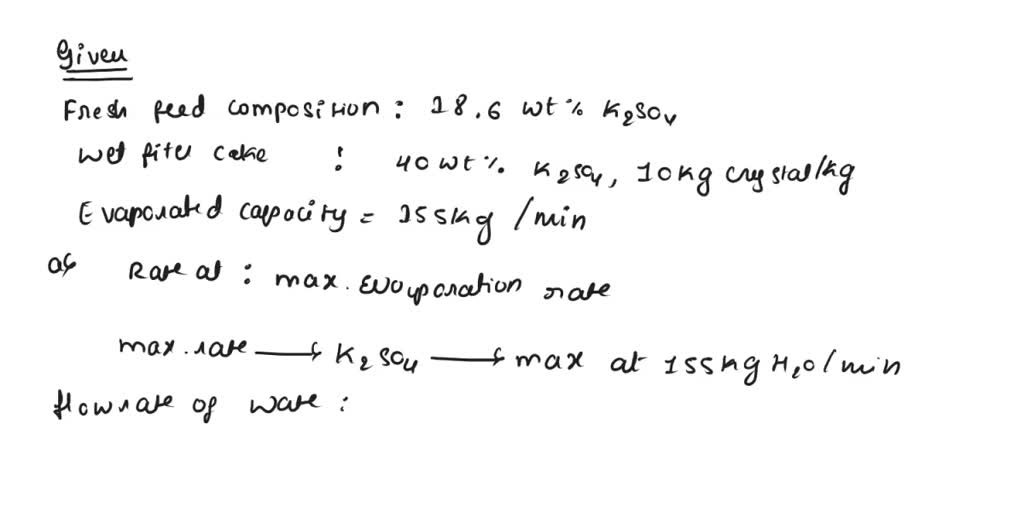 Given
Fresh feed composition : 18.6 wt % K2SO4
Wet filter cake : 40 wt %. K2SO4, 10 kg crystal/kg
Evaporated capacity = 155 kg /min
Rate at : max. Evaporation rate
max. rate → K2SO4 → max at 155 kg H2O/min
flowrate of wate :